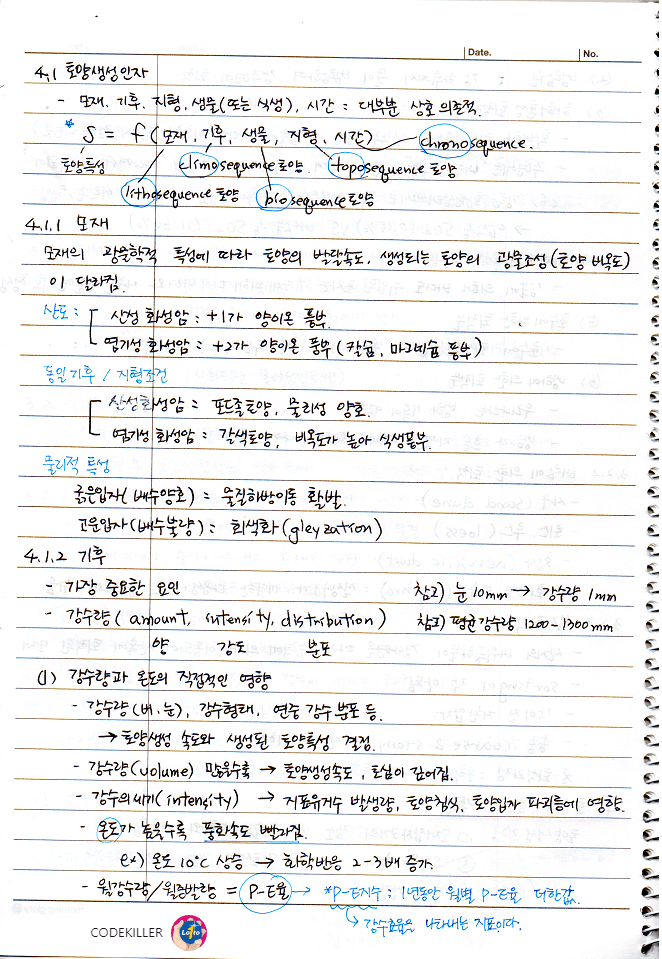 Date. No.
4.1 토양생성인자
- 모재, 기후, 지형, 생물(또는 식생), 시간 : 대부분 상호 의존적.
* S = f (모재, 기후, 생물, 지형, 시간) chronosequence.
토양특성 climosequence토양 toposequence 토양
lithosequence 토양 biosequence토양
4.1.1 모재
모재의 광물학적 특성에 따라 토양의 발달속도, 생성되는 토양의 광물조성(토양 비옥도)
이 달라짐.
산도 : 산성 화성암 : +1가 양이온 풍부.
염기성 화성암 : +2가 양이온 풍부 (칼슘, 마그네슘 풍부)
동일기후 / 지형조건
산성화성암 : 포드졸토양, 물리성 양호.
염기성 화성암 : 갈색토양, 비옥도가 높아 식생풍부.
물리적 특성
굵은입자(배수양호) : 물질하방이동 활발.
고운입자(배수불량) : 회색화(gleyzation)
4.1.2 기후
- 가장 중요한 요인 참고) 눈 10mm → 강수량 1mm
- 강수량( amount, intensity, distribution) 참고) 평균강수량 1200-1300mm
양 강도 분포
(1) 강수량과 온도의 직접적인 영향
- 강수량(비, 눈), 강수형태, 연중 강수 분포 등.
→ 토양생성 속도와 생성된 토양특성 결정.
- 강수량(volume) 많을수록 → 토양생성속도, 토심이 깊어짐.
- 강수의세기(intensity) → 지표유거수 발생량, 토양침식, 토양입자 파괴등에 영향.
- 온도가 높을수록 풍화속도 빨라짐.
ex) 온도 10°C 상승 → 화학반응 2-3배 증가.
- 월강수량/월증발량 = P-E율 → *P-E지수 : 1년동안 월별 P-E율 더한값.
→ 강수효율을 나타내는 지표이다.
CODEKILLER Lotto